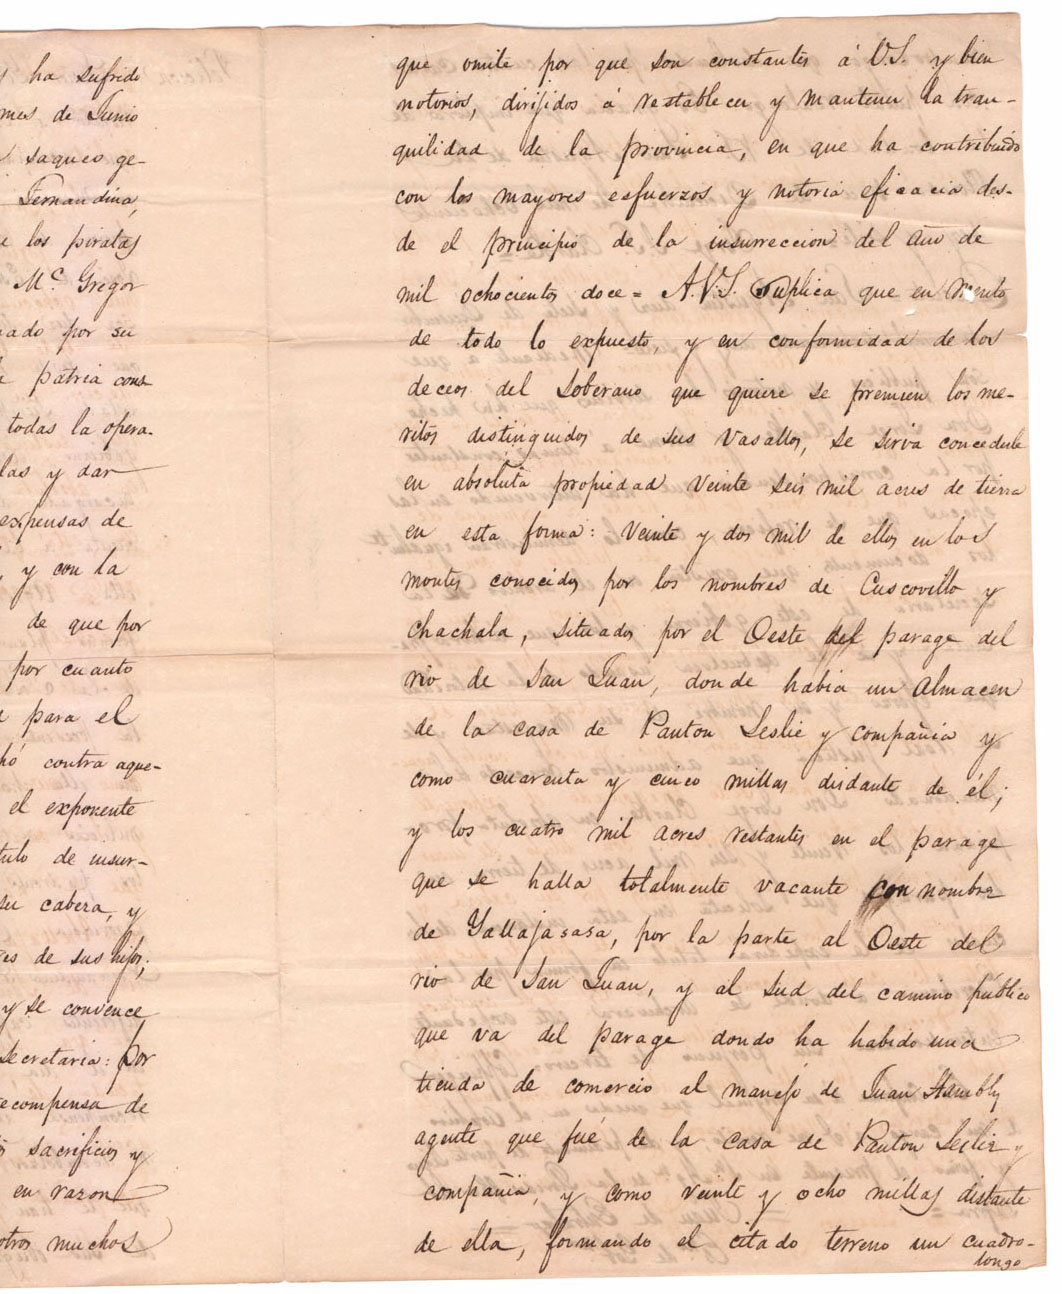 ha sufrido
mes de Junio
saqueo ge-
Fernandina,
los piratas
Mc. Gregor
por su
patria cons-
todas la opera-
las y dar
expensas de
y con la
de que por
por cuanto
para el
contra aque-
el exponente
de insur-
su cabeza, y
de sus hijos;
y se convence
Secretaria: por
recompensa de
sacrificios y
en razon
otros muchos
que omite por que son constantes á V.S. y bien
notorios, dirijidos á restablecer y mantener la tran-
quilidad de la provincia, en que ha contribuido
con los mayores esfuerzos y notoria eficacia des-
de el principio de la insurreccion del año de
mil ochocientos doce = A.V.S. Suplica que en merito
de todo lo expuesto, y en conformidad de los
deceos del Soberano que quiere se premien los me-
ritos distinguidos de sus vasallos, se sirva concederle
en absoluta propiedad veinte seis mil acres de tierra
en esta forma: Veinte y dos mil de ellos en los
montes conocidos por los nombres de Cuscovillo y
Chachala, situados por el Oeste del parage del
rio de San Juan, donde habia un Almacen
de la casa de Panton Leslie y compañia y
como cuarenta y cinco millas distante de él;
y los cuatro mil acres restantes en el parage
que se halla totalmente vacante con nombre
de Yallajasasa, por la parte al Oeste del
rio de San Juan, y al sud del camino público
que va del parage donde ha habido una
tienda de comercio al manejo de Juan Hambly
agente que fué de la casa de Panton Leslie y
compañia, y como veinte y ocho millas distante
de ella, formando el citado terreno un cuadro-
longo